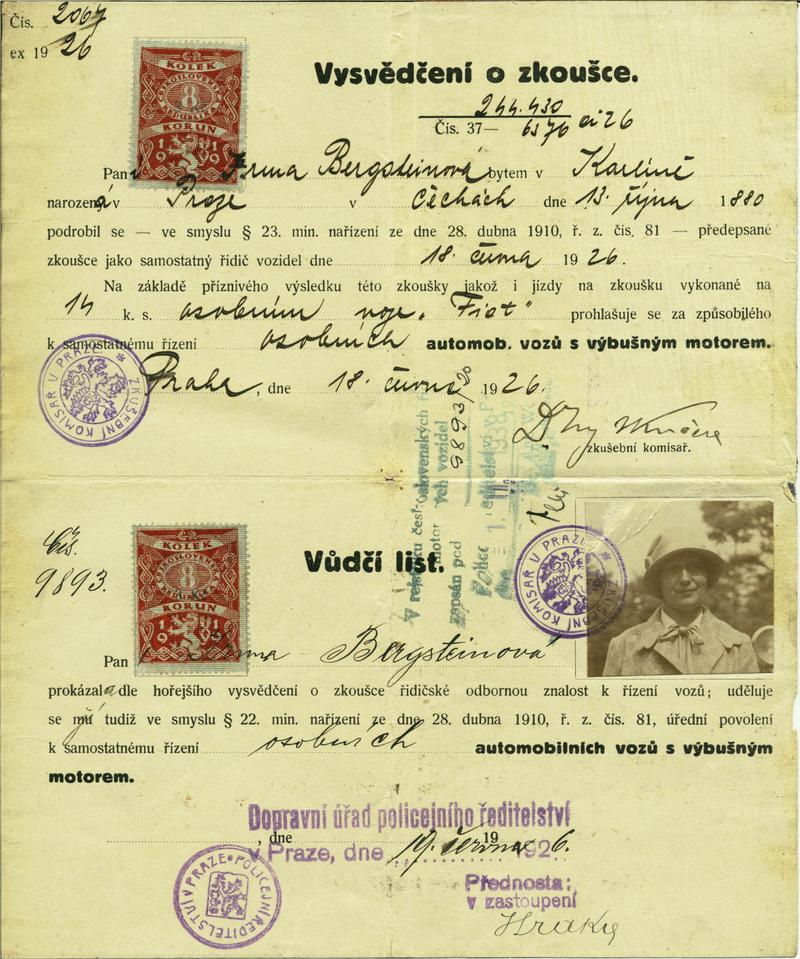 Čís. 2067
ex 1926
KOLEK
8
KORUN
1919
Vysvědčení o zkoušce.
244.430
Čís. 37— 6376 ai 26
Pan Irma Bergsteinová bytem v Karlíně
narozená v Praze v Čechách dne 13. října 1880
podrobil se — ve smyslu § 23. min. nařízení ze dne 28. dubna 1910, ř. z. čís. 81 — předepsané
zkoušce jako samostatný řidič vozidel dne 18. června 1926.
Na základě příznivého výsledku této zkoušky jakož i jízdy na zkoušku vykonané na
14 k. s. osobním voze „Fiat" prohlašuje se za způsobilého
k samostatnému řízení osobních automob. vozů s výbušným motorem.
Praha, dne 18. června 1926.
ZKUŠEBNÍ KOMISAŘ V PRAZE
zkušební komisař.
V rejstříku československých
motor vých vozidel
zapsán pod 9893/26
Čís.
9893.
KOLEK
8
KORUN
1919
Vůdčí list.
ZKUŠEBNÍ KOMISAŘ V PRAZE
Pan Irma Bergsteinová
prokázala dle hořejšího vysvědčení o zkoušce řidičské odbornou znalost k řízení vozů; uděluje
se jí tudíž ve smyslu § 22. min. nařízení ze dne 28. dubna 1910, ř. z. čís. 81, úřední povolení
k samostatnému řízení osobních automobilních vozů s výbušným
motorem.
Dopravní úřad policejního ředitelství
, dne 19
v Praze, dne 19. června 1926.
POLICEJNÍ ŘEDITELSTVÍ V PRAZE
Přednosta:
v zastoupení